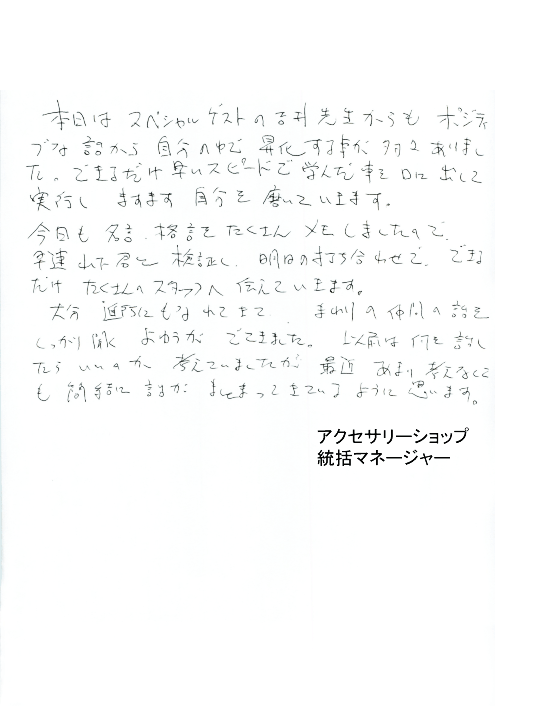 本日は スペシャルゲストの吉井先生からも ポジティ
ブな話から 自分の中で 昇化する事が 多々ありまし
た。できるだけ早いスピードで学んだ事を口に出して
実行し ますます 自分を磨いていきます。
今日も 名言、格言を たくさん メモしましたので、
早速 検証し、明日の打ち合わせで、できる
だけ たくさんのスタッフへ 伝えていきます。
大分 にもなれてきて、 まわりの仲間の話を
しっかり聞く よゆうが でてきました。以前は何を話し
たらいいのか 考えていましたが 最近 あまり考えなくて
も 簡結に 話が まとまってきているように思います。
アクセサリーショップ
統括マネージャー